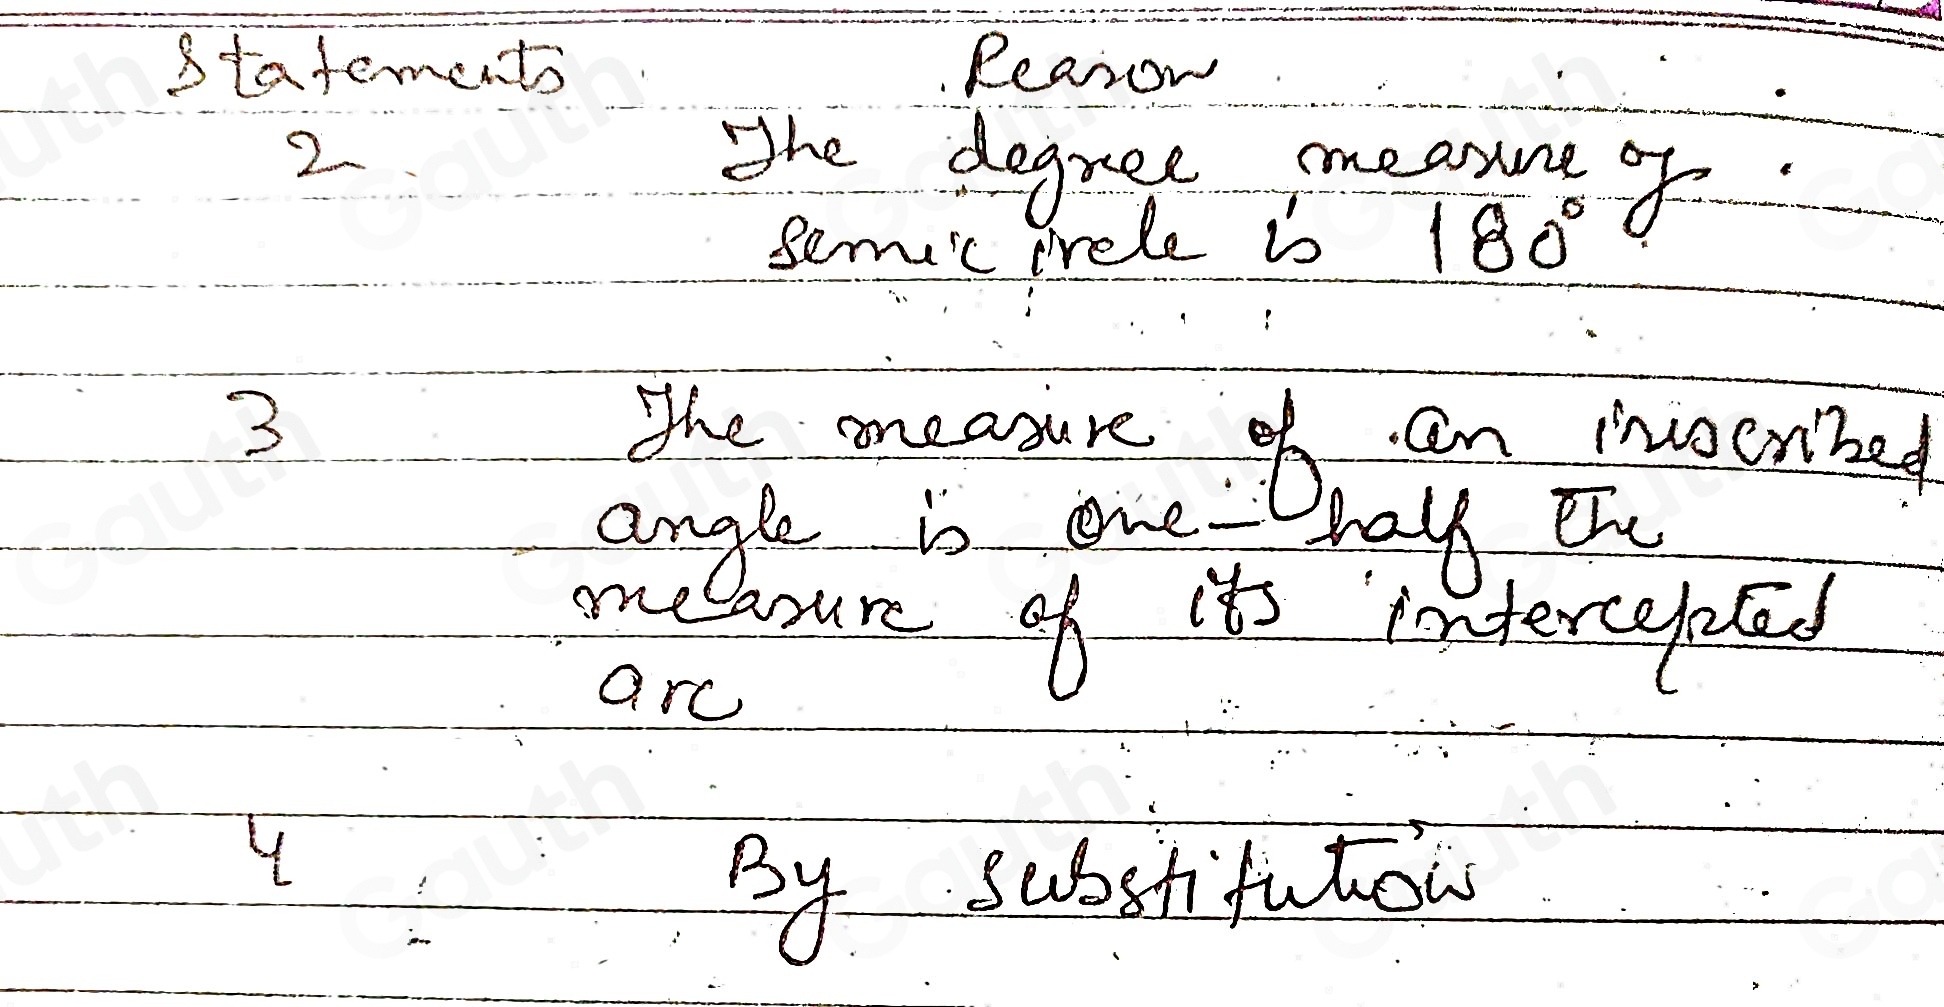 Statements Reason
2 The degree measure of
semicircle is 180°
3 The measure of an inscribed
angle is one-half the
measure of its intercepted
arc
4 By substitution